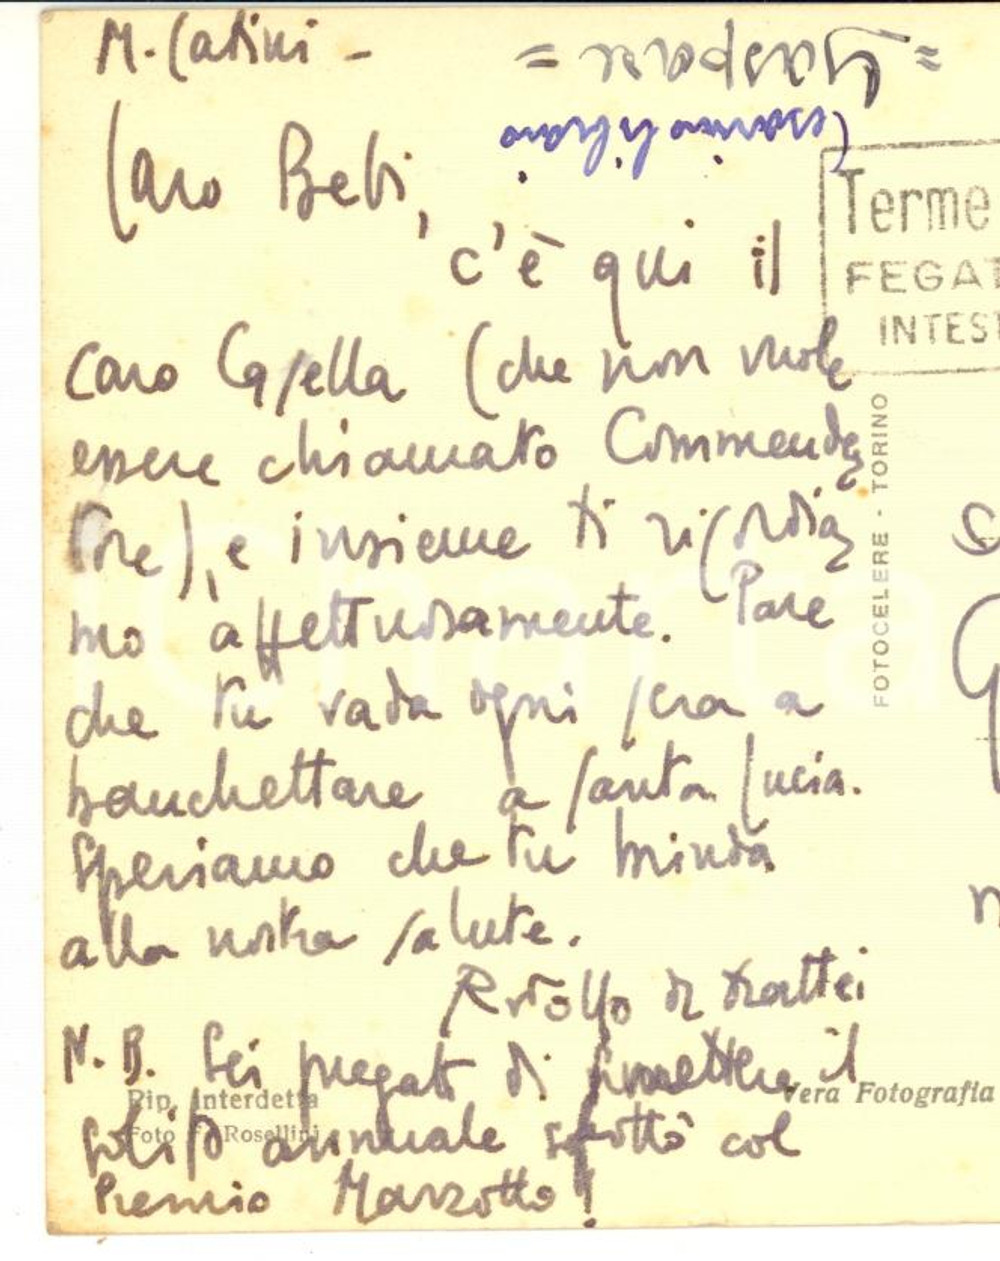 M. Catini -
Caro Bebi,
c'è qui il
caro Casella (che non vuole
essere chiamato Commenda=
tore), e insieme ti ricordia=
mo affettuosamente. Pare
che tu vada ogni sera a
banchettare a Santa Lucia.
Speriamo che tu brinda
alla nostra salute.
Rodolfo De Mattei
N. B. Sei pregato di smettere il
solito annuale sfottò col
Premio Marzotto!
Terme
FEGAT
INTEST
FOTOCELERE - TORINO
Rip. Interdetta
Foto Rosellini
Vera Fotografia